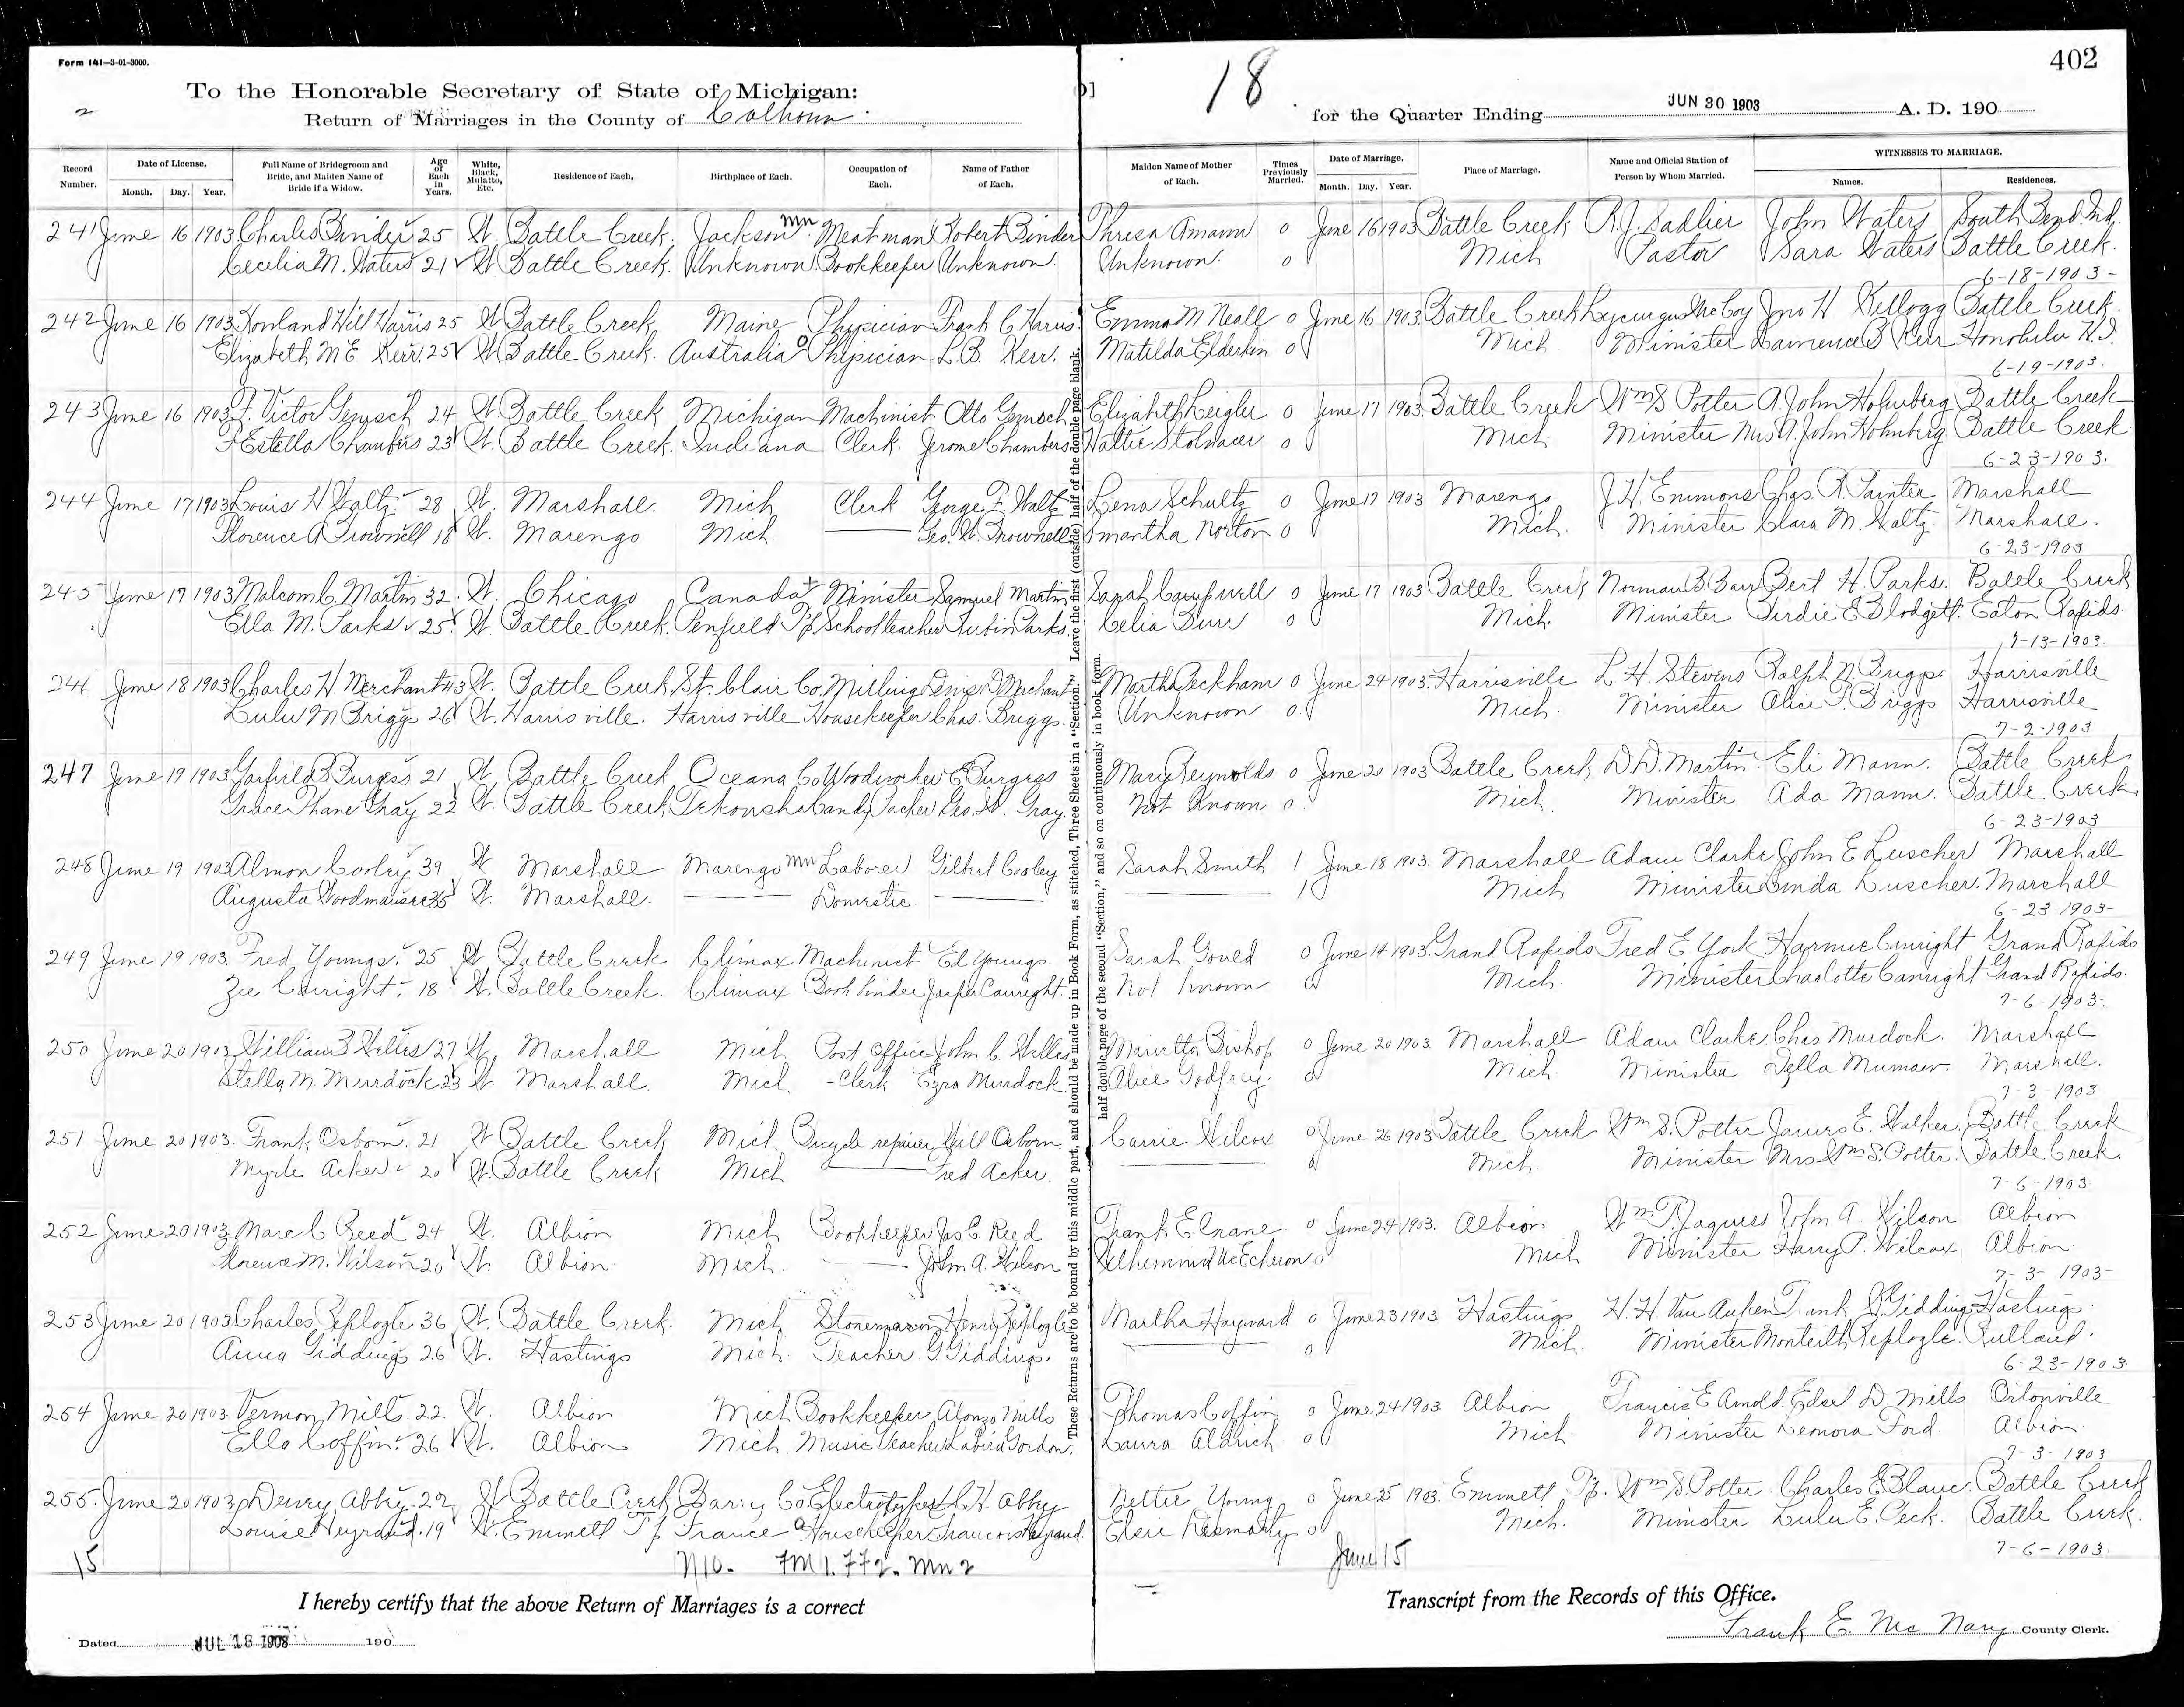 Form 141—3-01-3000.
402
2
18
To the Honorable Secretary of State of Michigan:
Return of Marriages in the County of Calhoun
for the Quarter Ending JUN 30 1903 A. D. 190
Record Number.
Date of License.
Month. Day. Year.
Full Name of Bridegroom and Bride, and Maiden Name of Bride if a Widow.
Age of Each in Years.
White, Black, Mulatto, Etc.
Residence of Each.
Birthplace of Each.
Occupation of Each.
Name of Father of Each.
Maiden Name of Mother of Each.
Times Previously Married.
Date of Marriage.
Month. Day. Year.
Place of Marriage.
Name and Official Station of Person by Whom Married.
WITNESSES TO MARRIAGE.
Names. Residences.
241 June 16 1903 Charles Binder 25 W. Battle Creek. Jackson Meatman Robert Binder Thresa Amann 0 June 16 1903 Battle Creek R.J. Sadlier John Waters South Bend Ind.
Cecelia M. Waters 21 W Battle Creek. Unknown. Bookkeeper Unknown. Unknown. 0 Mich Pastor Sara Waters Battle Creek.
6-18-1903-
242 June 16 1903 Howland Hill Harris 25 W Battle Creek Maine Physician Frank C Harris. Emma M Neall 0 June 16 1903. Battle Creek Lycurgus McCoy Jno H Kellogg Battle Creek.
Elizabeth M E. Kerr. 25 W Battle Creek. Australia Physician L. B. Kerr. Matilda Elderkin 0 Mich Minister Lawrence B Kerr Honolulu H.I.
6-19-1903.
243 June 16 1903 F. Victor Gemsch 24 W Battle Creek Michigan Machinist Otto Gemsch Elizabeth Leigler 0 June 17 1903. Battle Creek Wm S Potter A. John Holmberg Battle Creek
F Estella Chambers 23 W. Battle Creek. Indiana Clerk. Jerome Chambers Hattie 0 Mich. Minister Mrs A. John Holmberg Battle Creek.
6-23-1903.
244 June 17 1903 Louis H Waltz 28 W. Marshall. Mich Clerk George F. Waltz Lena Schultz 0 June 17 1903 Marengo J. H. Emmons Chas. R. Painter Marshall
Florence A Brownell 18 W. Marengo Mich. Geo. W. Brownell Smantha Norton 0 Mich. Minister Clara M. Waltz Marshall.
6-23-1903
245 June 17 1903 Malcom C Martin 32. W. Chicago Canada Minister Samuel Martin Sarah Campwell 0 June 17 1903 Battle Creek Norman B Barr Bert H. Parks. Battle Creek
Ella M. Parks 25. W. Battle Creek. Penfield Tp. Schoolteacher Rubin Parks. Celia Burr 0 Mich. Minister Birdie E Blodgett. Eaton Rapids.
7-13-1903.
246 June 18 1903 Charles H. Merchant 43 W. Battle Creek St. Clair Co. Milling Denison Merchant Martha Peckham 0 June 24 1903. Harrisville L. H. Stevens Ralph N. Briggs. Harrisville
Lulu M Briggs 26 W. Harrisville. Harrisville Housekeeper Chas. Briggs. Unknown 0. Mich Minister Alice T. Briggs Harrisville
7-2-1903
247 June 19 1903 Garfield B Burgess 21 W Battle Creek Oceana Co Woodworker E. Burgess Mary Reynolds 0 June 20 1903 Battle Creek D. D. Martin Eli Mann. Battle Creek
Grace Thane Gray 22 W. Battle Creek Tekonsha Candy Packer Geo. W. Gray. Not Known 0. Mich. Minister Ada Mann. Battle Creek.
6-23-1903
248 June 19 1903 Almon Cooley. 39 W Marshall Marengo Laborer Gilbert Cooley Sarah Smith 1 June 18 1903. Marshall Adam Clarke John E Luscher Marshall
Augusta Woodmansee 35 W. Marshall. Domestic. 1 Mich Minister Linda Luscher. Marshall
6-23-1903-
249 June 19 1903. Fred Youngs. 25 W Battle Creek Climax Machinist Ed Youngs. Sarah Gould 0 June 14 1903. Grand Rapids Fred E York Harmie Canright Grand Rapids
Zoe Canright. 18 W. Battle Creek. Climax Book binder Jasper Canright. Not known 0 Mich. Minister Charlotte Canright Grand Rapids.
7-6-1903-
250 June 20 1903 William B Willis 27 W. Marshall Mich Post Office John C. Willis Marietta Bishop 0 June 20 1903. Marshall Adam Clarke. Chas Murdock. Marshall
Stella M. Murdock 23 W Marshall. Mich -Clerk Ezra Murdock Alice Godfrey. 0 Mich. Minister Della Mumaw. Marshall.
7-3-1903
251 June 20 1903. Frank Osborn. 21 W Battle Creek Mich Bicycle repairer Will Osborn. Carrie Wilcox 0 June 26 1903 Battle Creek Wm S. Potter James E. Walker. Battle Creek
Myrle Acker 20 W. Battle Creek Mich Fred Acker. 0 Mich. Minister Mrs Wm S. Potter. Battle Creek.
7-6-1903.
252 June 20 1903. Marc C Reed 24 W. Albion Mich Bookkeeper Jas C. Reed Frank E Crane 0 June 24 1903. Albion Wm T. Jaquess John A. Wilson Albion
Florence M. Wilson 20 W. Albion Mich. John A. Wilson Wilhemina McEcheron 0 Mich Minister Harry P. Wilcox Albion
7-3-1903-
253 June 20 1903 Charles Replogle 36 W. Battle Creek. Mich Stonemason Henry Replogle Martha Hayward 0 June 23 1903 Hastings H. H. Van Auken Frank J Giddings Hastings.
Anna Giddings 26 W. Hastings Mich. Teacher. G Giddings. 0 Mich. Minister Monteith Replogle. Rutland.
6-23-1903.
254 June 20 1903. Vernon Mills. 22 W. Albion Mich Bookkeeper Alonzo Mills Thomas Coffin 0 June 24 1903. Albion Francis E Arnold. Edsel D. Mills Ortonville
Ella Coffin. 26 W. Albion Mich. Music Teacher Labira Gordon. Laura Aldrich 0 Mich. Minister Lenora Ford. Albion.
7-3-1903
255. June 20 1903 Dewey Abbey. 22 W Battle Creek Barry Co Electrotyper L. H. Abbey Nettie Young 0 June 25 1903. Emmett Tp. Wm S. Potter. Charles E Blane. Battle Creek
Louise Heyraud. 19 W. Emmett Tp France Housekeeper Francois Heyraud. Elsie 0 Mich. Minister Lulu E. Peck. Battle Creek.
7-6-1903.
15
N10. FM1. 772. Mn 2
June 15
These Returns are to be bound by this middle part, and should be made up in Book Form, as stitched, Three Sheets in a "Section." Leave the first (outside) half of the double page blank.
half double page of the second "Section," and so on continuously in book form.
I hereby certify that the above Return of Marriages is a correct
Transcript from the Records of this Office.
Dated JUL 18 1903 190
Frank E. Mc Nary, County Clerk.